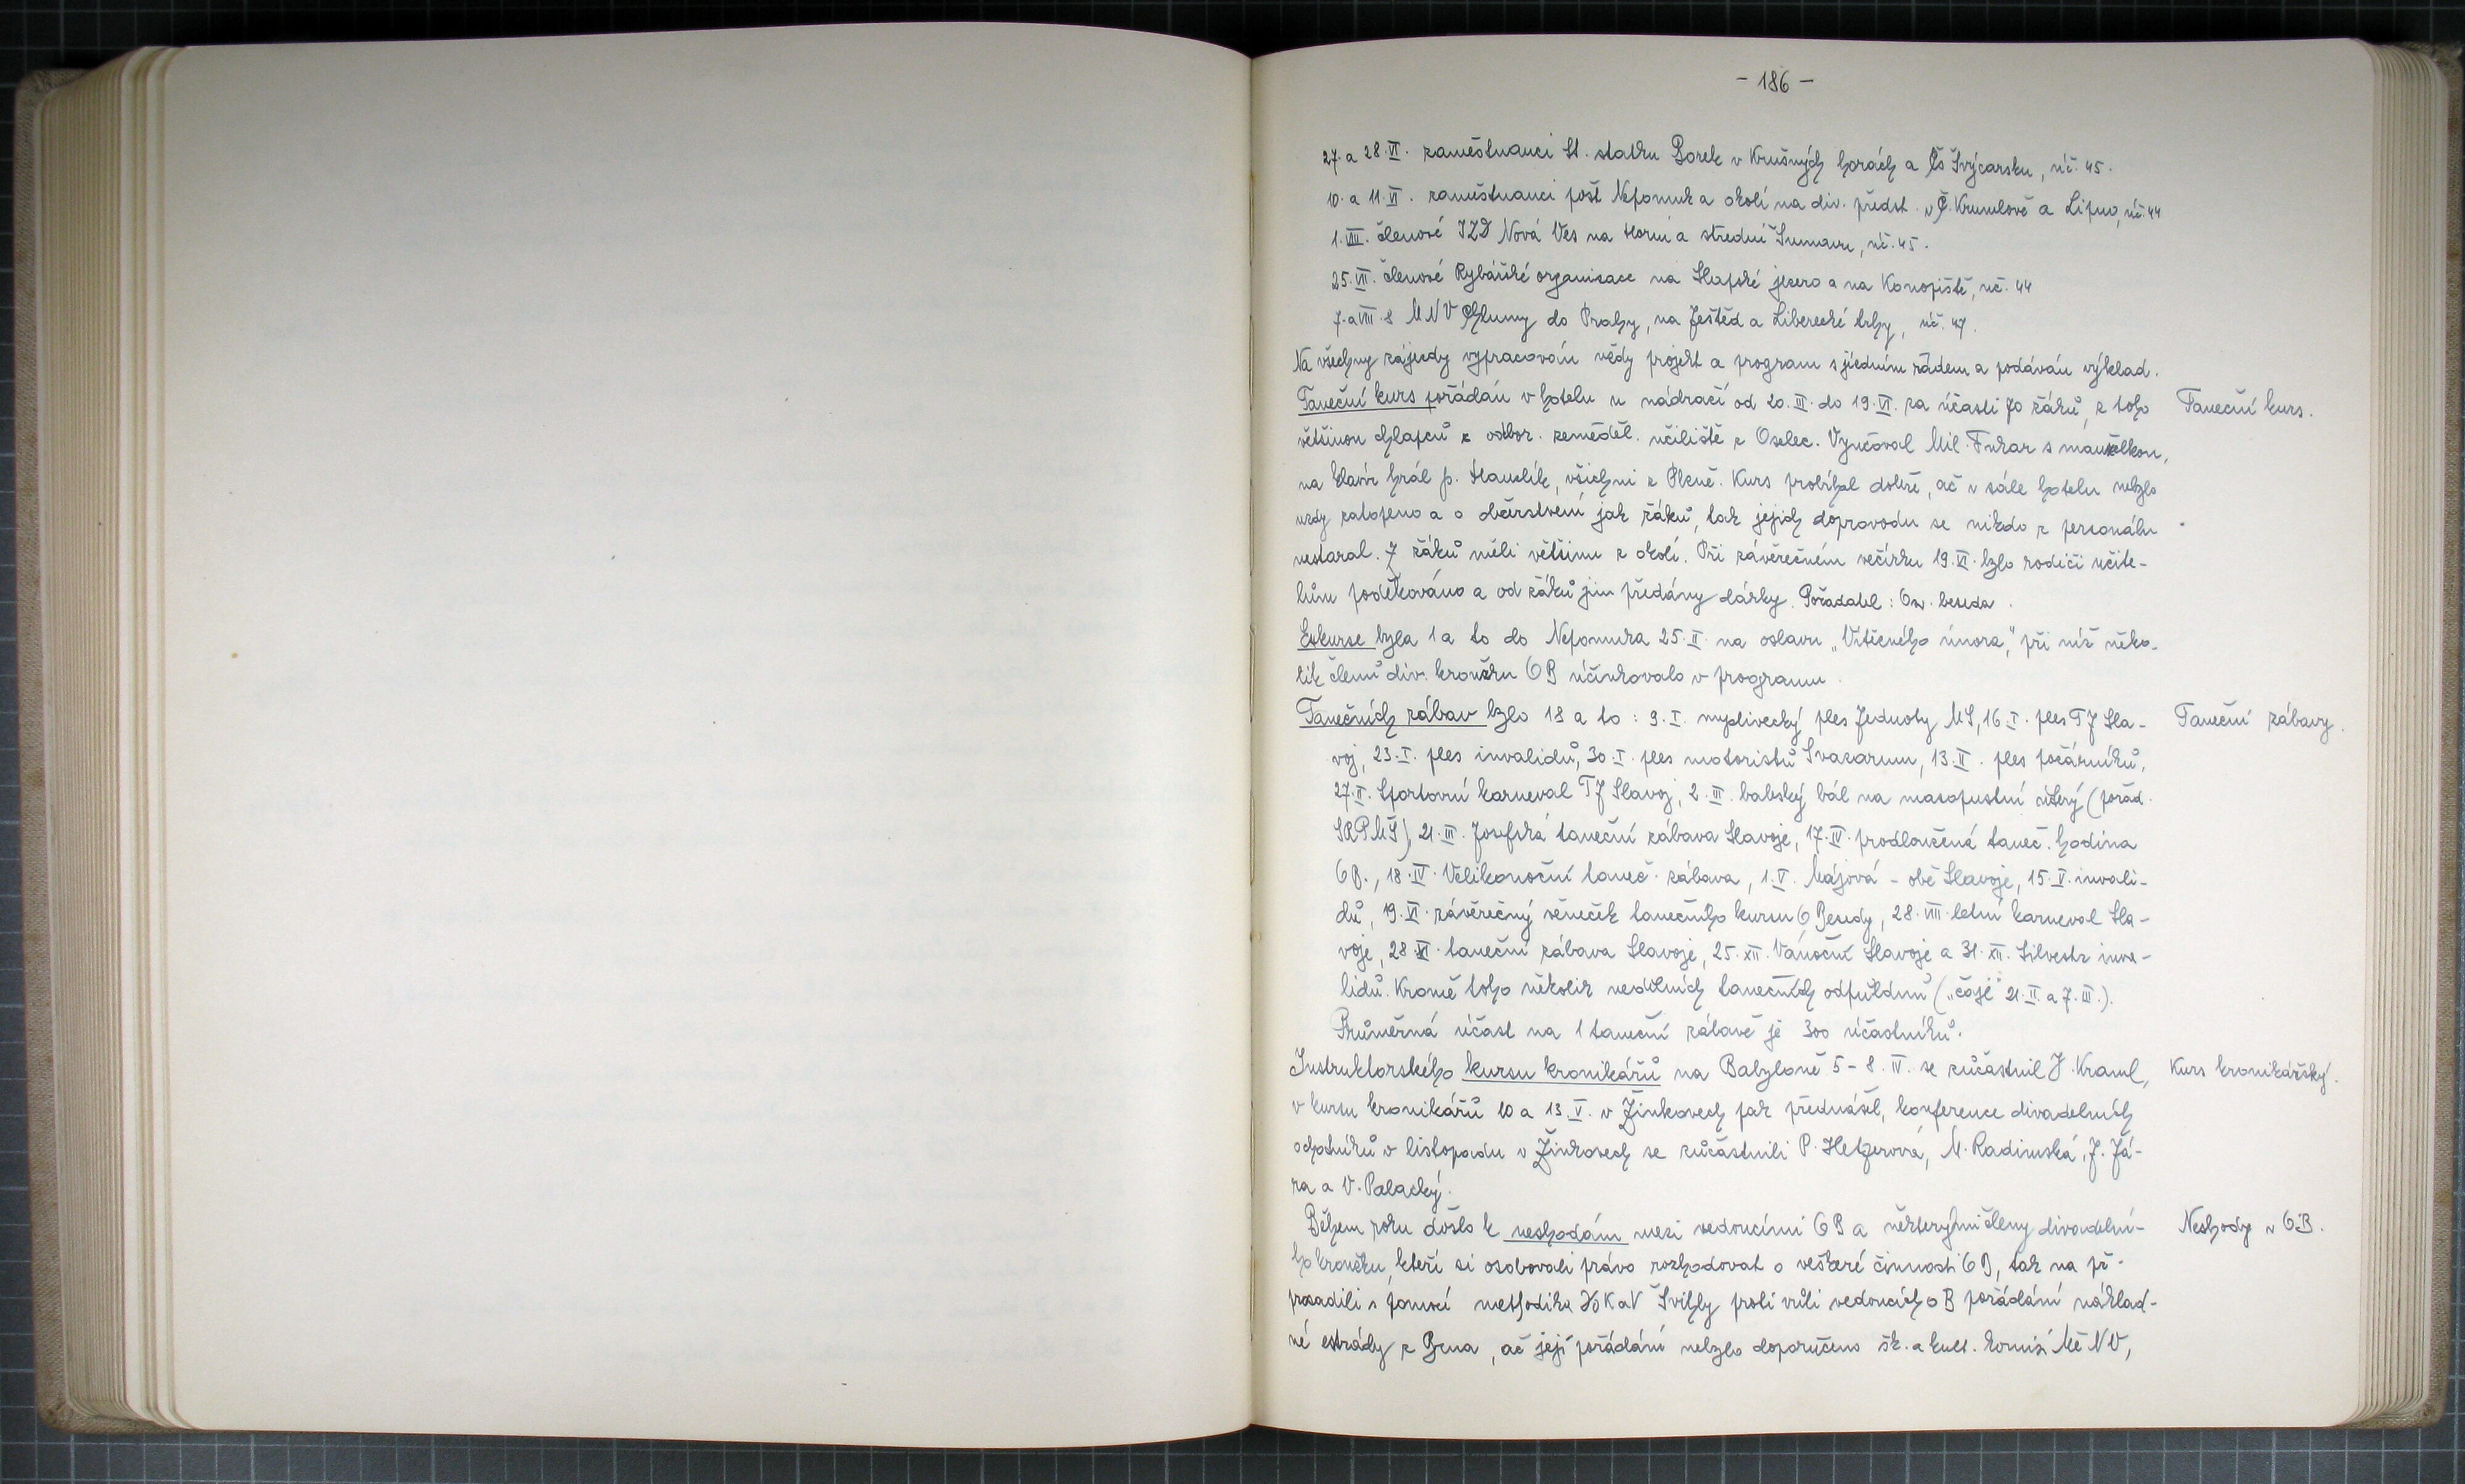 - 186 -
27. a 28. VI. zaměstnanci St. statku Borek v Krušných horách a Čs Švýcarsku, úč. 45.
10. a 11. VI. zaměstnanci pošt Nepomuk a okolí na div. předst. v Č. Krumlově a Lipno, úč. 44
1. VIII. členové JZD Nová Ves na Horní a střední Šumavu, úč. 45.
25. VII. členové Rybářské organisace na Slapské jezero a na Konopiště, úč. 44
7. a VIII. 8 MNV Chlumy do Prahy, na Ještěd a Liberecké trhy, úč. 47.
Na všechny zájezdy vypracován vždy projekt a program s jízdním řádem a podáván výklad.
Taneční kurs pořádán v hotelu u nádraží od 20. III. do 19. VI. za účasti 70 žáků, z toho
Taneční kurs.
většinou chlapců z odbor. zeměděl. učiliště z Oselec. Vyučoval Mil. Fukar s manželkou,
na klavír hrál p. Havelík, všichni z Plzně. Kurs probíhal dobře, ač v sále hotelu nebylo
vždy zatopeno a o občerstvení jak žáků, tak jejich doprovodu se nikdo z personálu
nestaral. Z žáků měli většinu z okolí. Při závěrečném večírku 19. VI. bylo rodiči učite-
lům poděkováno a od žáků jim předány dárky. Pořadatel: Osv. beseda.
Exkurse byla 1 a to do Nepomuka 25. II. na oslavu „Vítězného února", při níž něko-
lik členů div. kroužku OB účinkovalo v programu.
Tanečních zábav bylo 18 a to: 9. I. myslivecký ples Jednoty MS, 16. I. ples TJ Sla-
Taneční zábavy.
voj, 23. I. ples invalidů, 30. I. ples motoristů Svazarmu, 13. II. ples požárníků,
27. II. Sportovní karneval TJ Slavoj, 2. III. babský bál na masopustní úterý (pořád.
SRPMŠ), 21. III. Josefská taneční zábava Slavoje, 17. IV. prodloužená taneč. hodina
OB., 18. IV. Velikonoční taneč. zábava, 1. V. Májová - obě Slavoje, 15. V. invali-
dů, 19. VI. závěrečný věneček tanečního kursu O Besedy, 28. VIII. letní karneval Sla-
voje, 28. XI. taneční zábava Slavoje, 25. XII. Vánoční Slavoje a 31. XII. Silvestr inva-
lidů. Kromě toho několik nedělních tanečních odpůldnů („čaje" 21. II. a 7. III.).
Průměrná účast na 1 taneční zábavě je 300 účastníků.
Instruktorského kursu kronikářů na Babyloně 5 - 8. IV. se zúčastnil J. Kraml,
Kurs kronikářský.
v kursu kronikářů 10 a 13. V. v Žinkovech pak přednášel, konference divadelních
ochotníků v listopadu v Žinkovech se zúčastnili P. Hetzerová, M. Radimská, J. Já-
ra a V. Palacký.
Během roku došlo k neshodám mezi vedoucími OB a některými členy divadelní-
Neshody v OB.
ho kroužku, kteří si osobovali právo rozhodovat o veškeré činnosti OB, tak na př.
prosadili s pomocí methodika KaV Švihly proti vůli vedoucích OB pořádání náklad-
né estrády z Brna, ač její pořádání nebylo doporučeno šk. a kult. komisí MěNV,